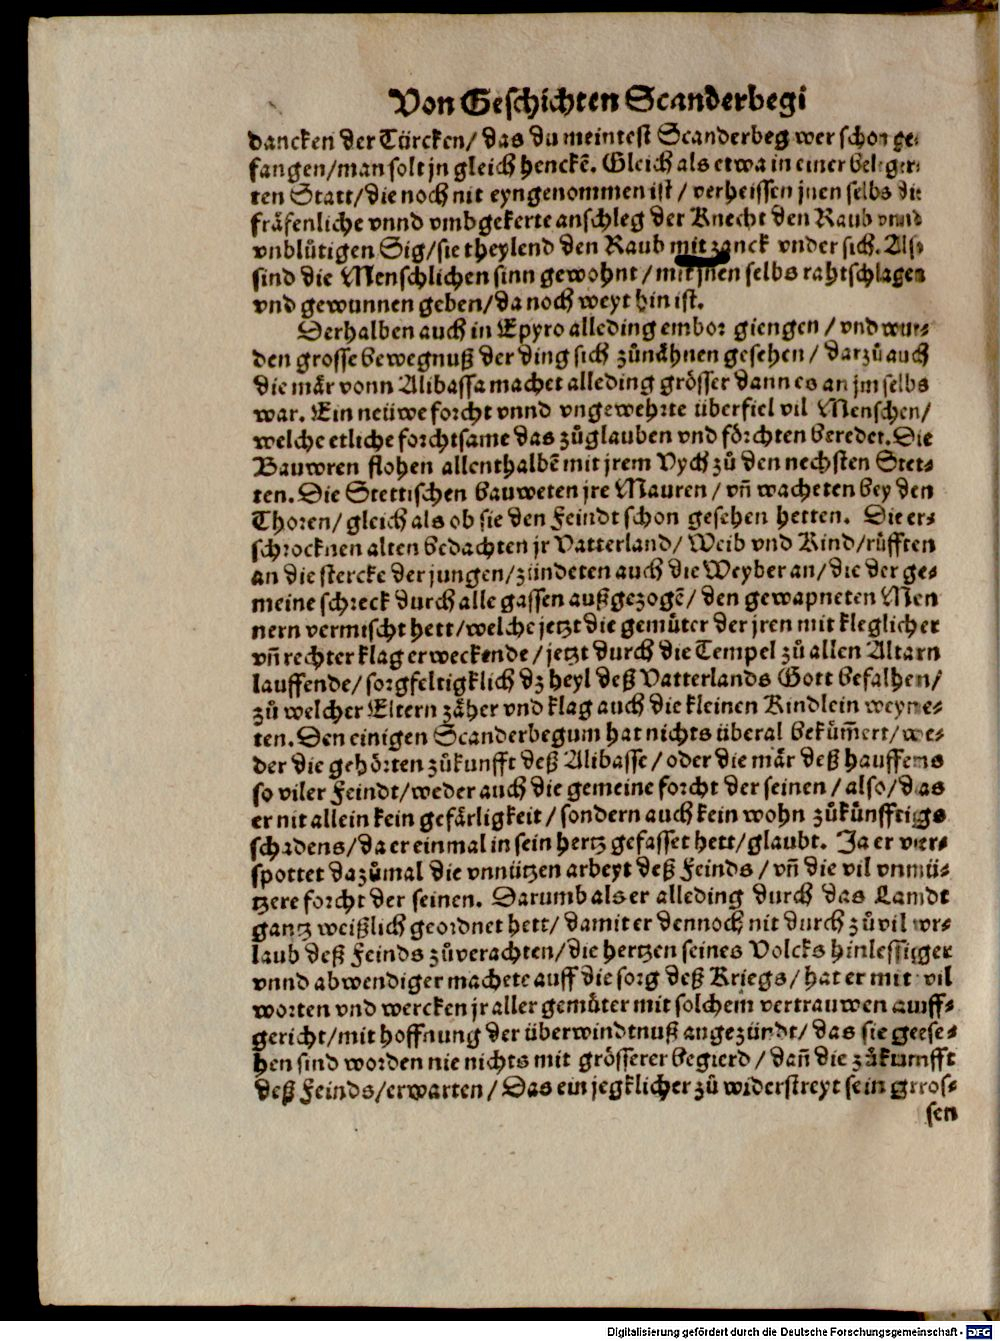 Von Geschichten Scanderbegi
dancken der Türcken/ das du meintest Scanderbeg wer schon ge⸗
fangen/man solt jn gleich henckē. Gleich als etwa in einer beleger⸗
ten Statt/die noch nit eyngenommen ist/ verheissen jnen selbs die
fräfenliche vnnd vmbgekerte anschleg der Knecht den Raub vnnd
vnblůtigen Sig/sie theylend den Raub mit zanck vnder sich. Als⸗
sind die Menschlichen sinn gewohnt/ mit jnen selbs rahtschlagen
vnd gewunnen geben/da noch weyt hin ist.
Derhalben auch in Epyro alleding embor giengen/ vnd wur⸗
den grosse bewegnuß der ding sich zůnähnen gesehen/ darzů auch
die mär vonn Alibassa machet alleding grösser dann es an jm selbs
war. Ein neüwe forcht vnnd vngewehrte überfiel vil Menschen/
welche etliche forchtsame das zůglauben vnd förchten beredet. Die
Bauwren flohen allenthalbē mit jrem Vych zů den nechsten Stet⸗
ten. Die Stettischen bauweten jre Mauren/ vn̄ wacheten bey den
Thoren/ gleich als ob sie den Feindt schon gesehen hetten. Die er⸗
schrocknen alten bedachten jr Vatterland/ Weib vnd Kind/růfften
an die stercke der jungen/zündeten auch die Weyber an/die der ge⸗
meine schreck durch alle gassen außgezogē/ den gewapneten Men
nern vermischt hett/welche jetzt die gemüter der jren mit kleglicher
vn̄ rechter klag erweckende/jetzt durch die Tempel zů allen Altarn
lauffende/ sorgfeltigklich dz heyl deß Vatterlands Gott befalhen/
zů welcher Eltern zäher vnd klag auch die kleinen Kindlein weyne⸗
ten. Den einigen Scanderbegum hat nichts überal bekům̄ert/ we⸗
der die gehörten zůkunfft deß Alibasse/ oder die mär deß hauffens
so viler Feindt/weder auch die gemeine forcht der seinen/ also/das
er nit allein kein gefärligkeit/ sondern auch kein wohn zůkünfftigs
schadens/da er einmal in sein hertz gefasset hett/glaubt. Ja er ver⸗
spottet dazůmal die vnnützen arbeyt deß Feinds/ vn̄ die vil vnnü⸗
tzere forcht der seinen. Darumb als er alleding durch das Landt
gantz weißlich geordnet hett/ damit er dennoch nit durch zůvil vr⸗
laub deß Feinds zůverachten/die hertzen seines Volcks hinlessiger
vnnd abwendiger machete auff die sorg deß Kriegs/ hat er mit vil
worten vnd wercken jr aller gemüter mit solchem vertrauwen auff⸗
gericht/mit hoffnung der überwindtnuß angezündt/ das sie gese⸗
hen sind worden nie nichts mit grösserer begierd/ dan̄ die zůkunfft
deß Feinds/erwarten/ Das ein jegklicher zů widerstreyt sein gros⸗
sen
Digitalisierung gefördert durch die Deutsche Forschungsgemeinschaft - DFG